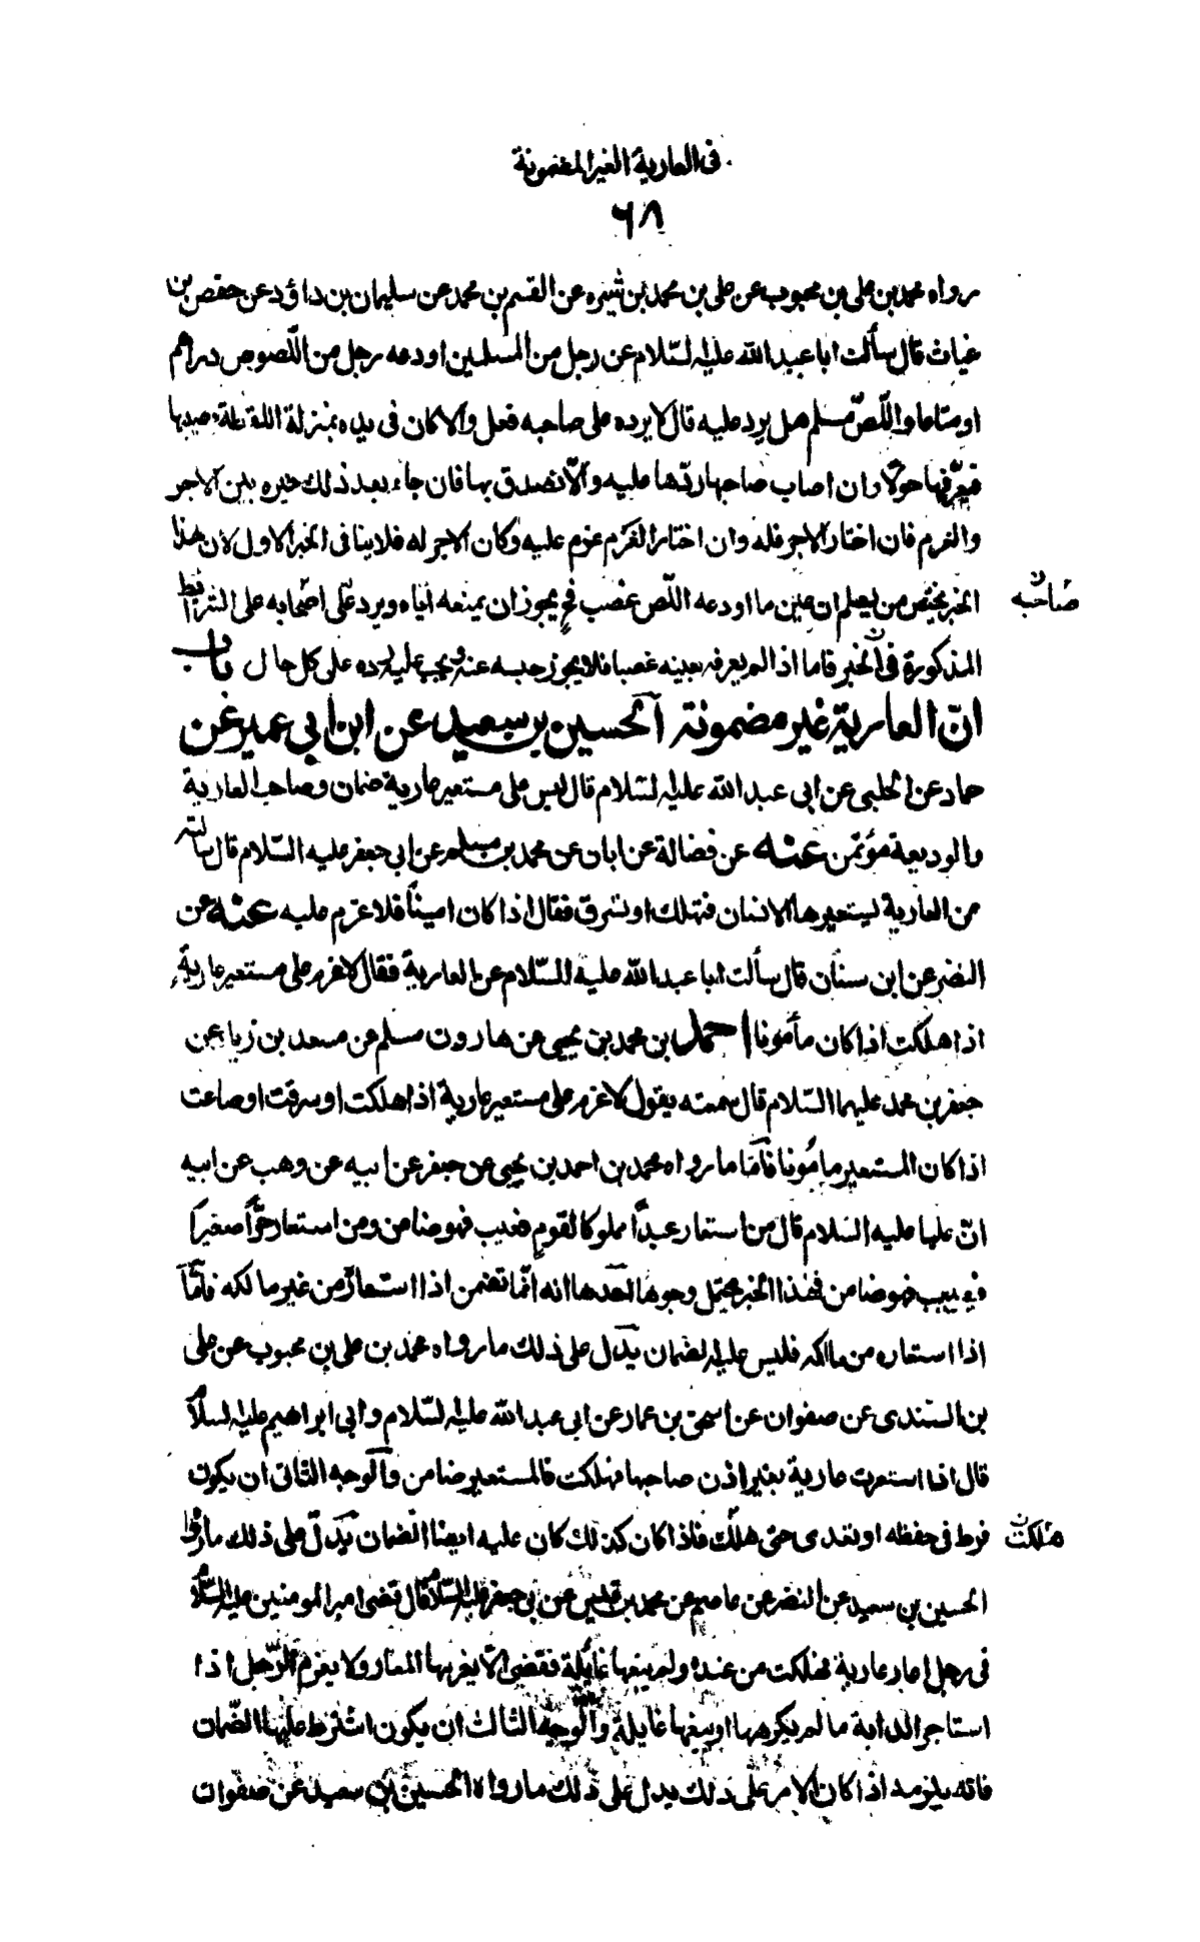 فى العارية الغير المضمونة
٦٨
رواه محمد بن على بن محبوب عن على بن محمد بن شيره عن القسم بن محمد عن سليمان بن داؤد عن حفص بن
غياث قال سألت ابا عبد الله عليه السّلام عن رجل من المسلمين اودعه رجل من اللّصوص دراهم
او متاعا واللّصّ مسلم هل يرد عليه قال لا يرده على صاحبه فعل والا كان فى يده بمنزلة اللقطة يصيبها
فيعرّفها حولًا وان اصاب صاحبها ردّها عليه والّا تصدق بها فان جاء بعد ذلك خيره بين الاجر
والغرم فان اختار الاجر فله وان اختار الغرم غرم عليه وكان الاجر له فلا ينافى الخبر الاول لان هذا
الخبر يختص من يعلم ان عين ما اودعه اللّص غصب فح يجوز ان يمنعه اياه ويرد على اصحابه على الشرايط
صاحبه ن
المذكورة فى الخبر فاما اذا لم يعرفه بعينه غصبا فلا يجوز حبسه عنه ويجب عليه رده على كل حال باب
انّ العارية غير مضمونة الحسين بن سعيد عن ابن ابي عمير عن
حماد عن الحلبى عن ابى عبد الله عليه السّلام قال ليس على مستعير عارية ضمان وصاحب العارية
والوديعة مؤتمن عنه عن فضالة عن ابان عن محمد بن مسلم عن ابي جعفر عليه السّلام قال سألته
عن العارية ليستعيرها الانسان فتهلك او تسرق فقال اذا كان امينًا فلا غرم عليه عنه عن
النضر عن ابن سنان قال سألت ابا عبد الله عليه السّلام عن العارية فقال لا غرم على مستعير عارية
اذا هلكت اذا كان مأمونا احمد بن محمد بن يحيى عن هارون مسلم عن مسعد بن زياد عن
جعفر بن محمد عليهما السّلام قال سمعته يقول لا غرم على مستعير عارية اذا هلكت او سرقت او ضاعت
اذا كان المستعير مامُونا فامّا ما رواه محمد بن احمد بن يحيى عن جعفر عن ابيه عن وهب عن ابيه
انّ عليا عليه السّلام قال من استعار عبدًا مملوكا لقوم فعيب فهو ضامن ومن استعار حرًّا صغيرًا
فعيب فهو ضامن فهذا الخبر يحتمل وجوها احدها انه انّما تضمن اذا استعار من غير مالكه فامّا
اذا استعاره من مالكه فليس عليه الضمان يدل على ذلك ما رواه محمد بن على بن محبوب عن على
بن السّندى عن صفوان عن اسحٰق بن عمار عن ابى عبد الله عليه السّلام وابى ابراهيم عليه السلام
قال اذا استعرت عارية بغير اذن صاحبها فهلكت فالمستعير ضامن والوجه الثانى ان يكون
فرط فى حفظه او تعدى حتى هلك فاذا كان كذلك كان عليه ايضا الضمان يدلّ على ذلك ما رواه
هلكت ن
الحسين بن سعيد عن النضر عن عاصم عن محمد بن قيس عن ابى جعفر عليه السّلام قال قضى امير المومنين عليه السّلام
فى رجل اعار عارية فهلكت من عنده ولم يبغها غائلة فقضى الّا يغرمها المعار ولا يغرم الرّجل اذا
استاجر الدابة ما لم يكرهها او يبغها غايلة والوجه الثالث ان يكون اشترط عليها الضّمان
فانه يلزمه اذا كان الامر على ذلك يدل على ذلك ما رواه الحسين بن سعيد عن صفوان